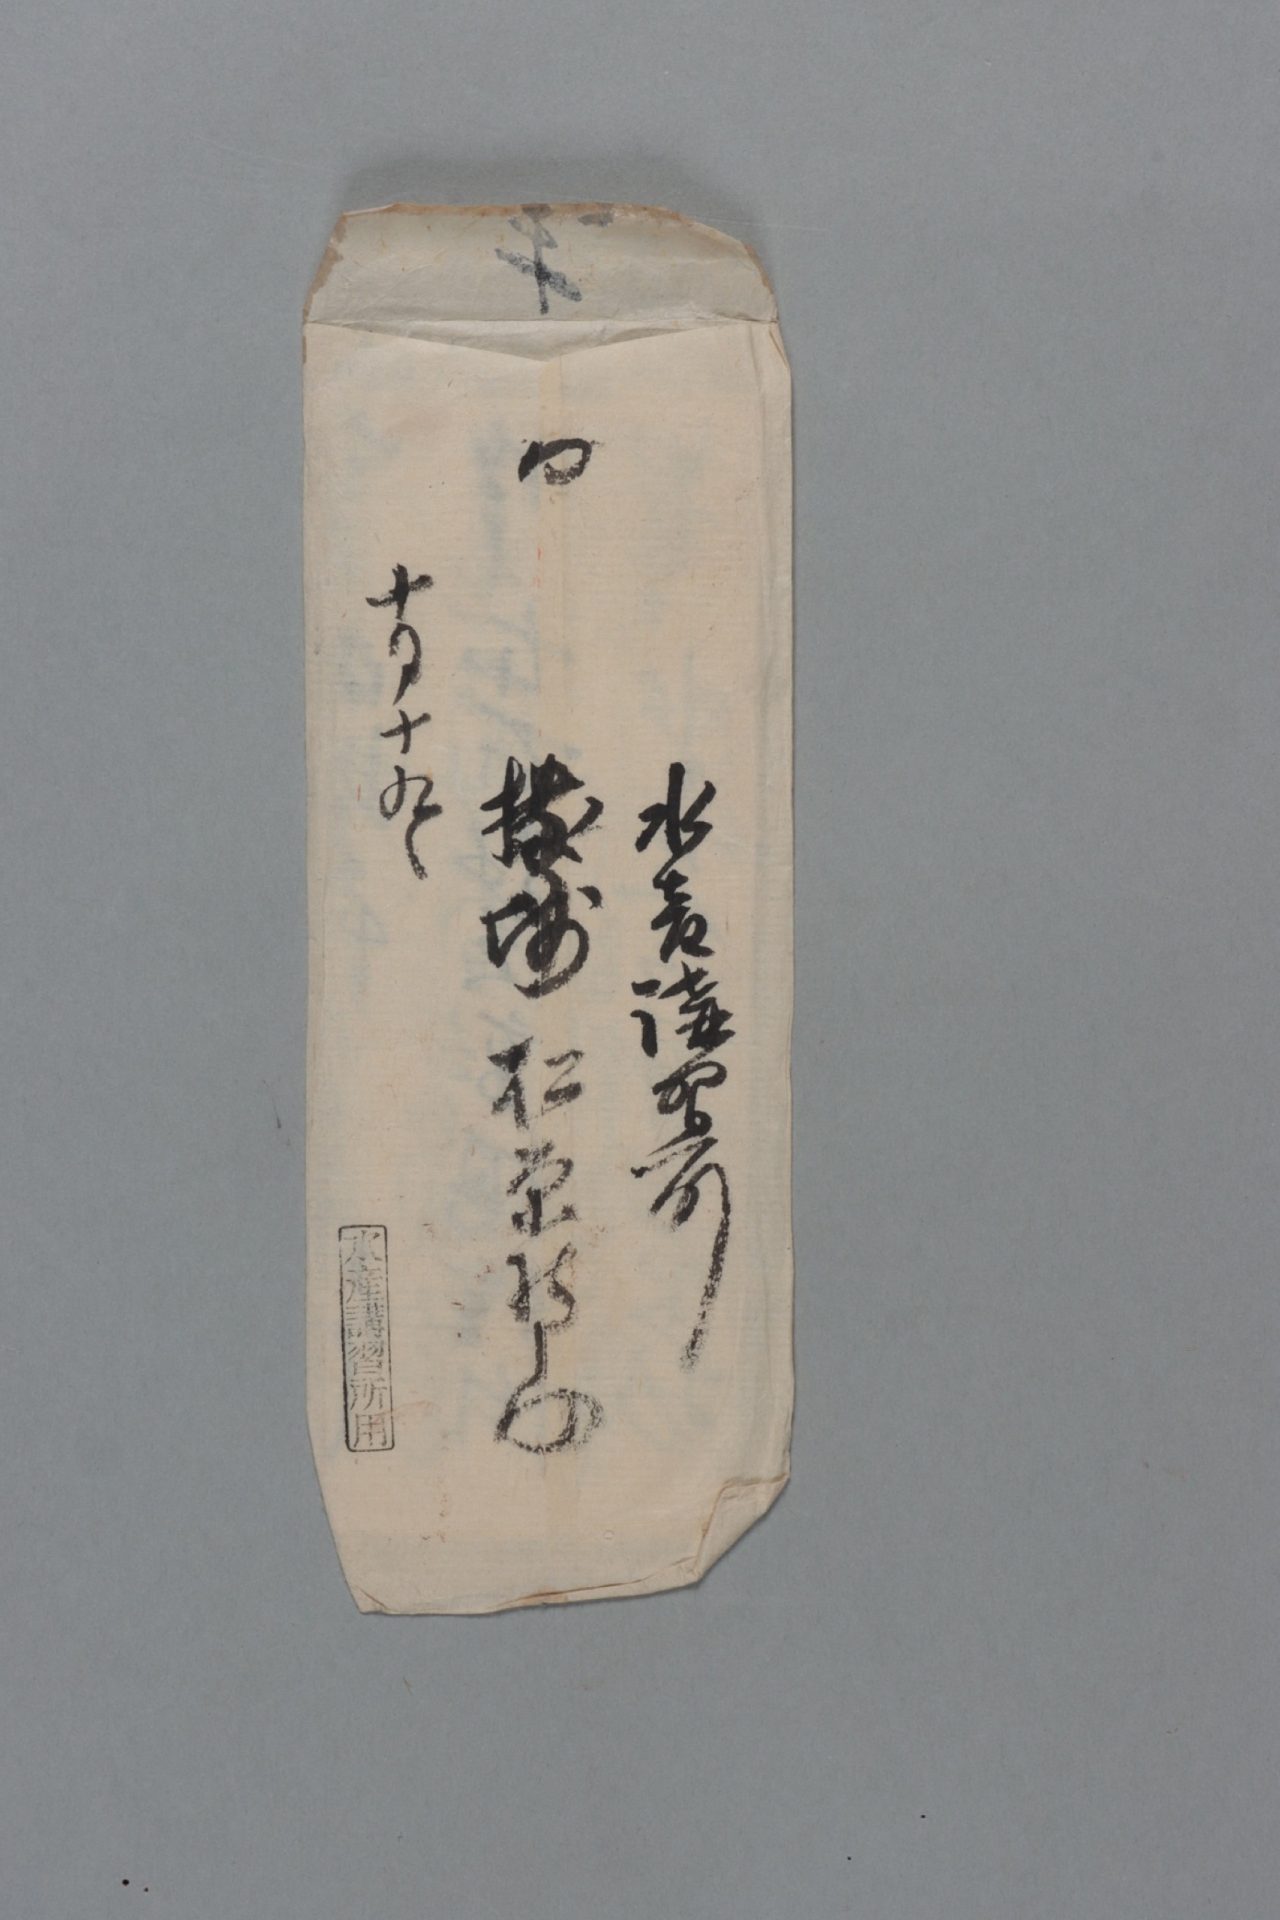 水産講習所
松原新之助
十月十九日
水産講習所用